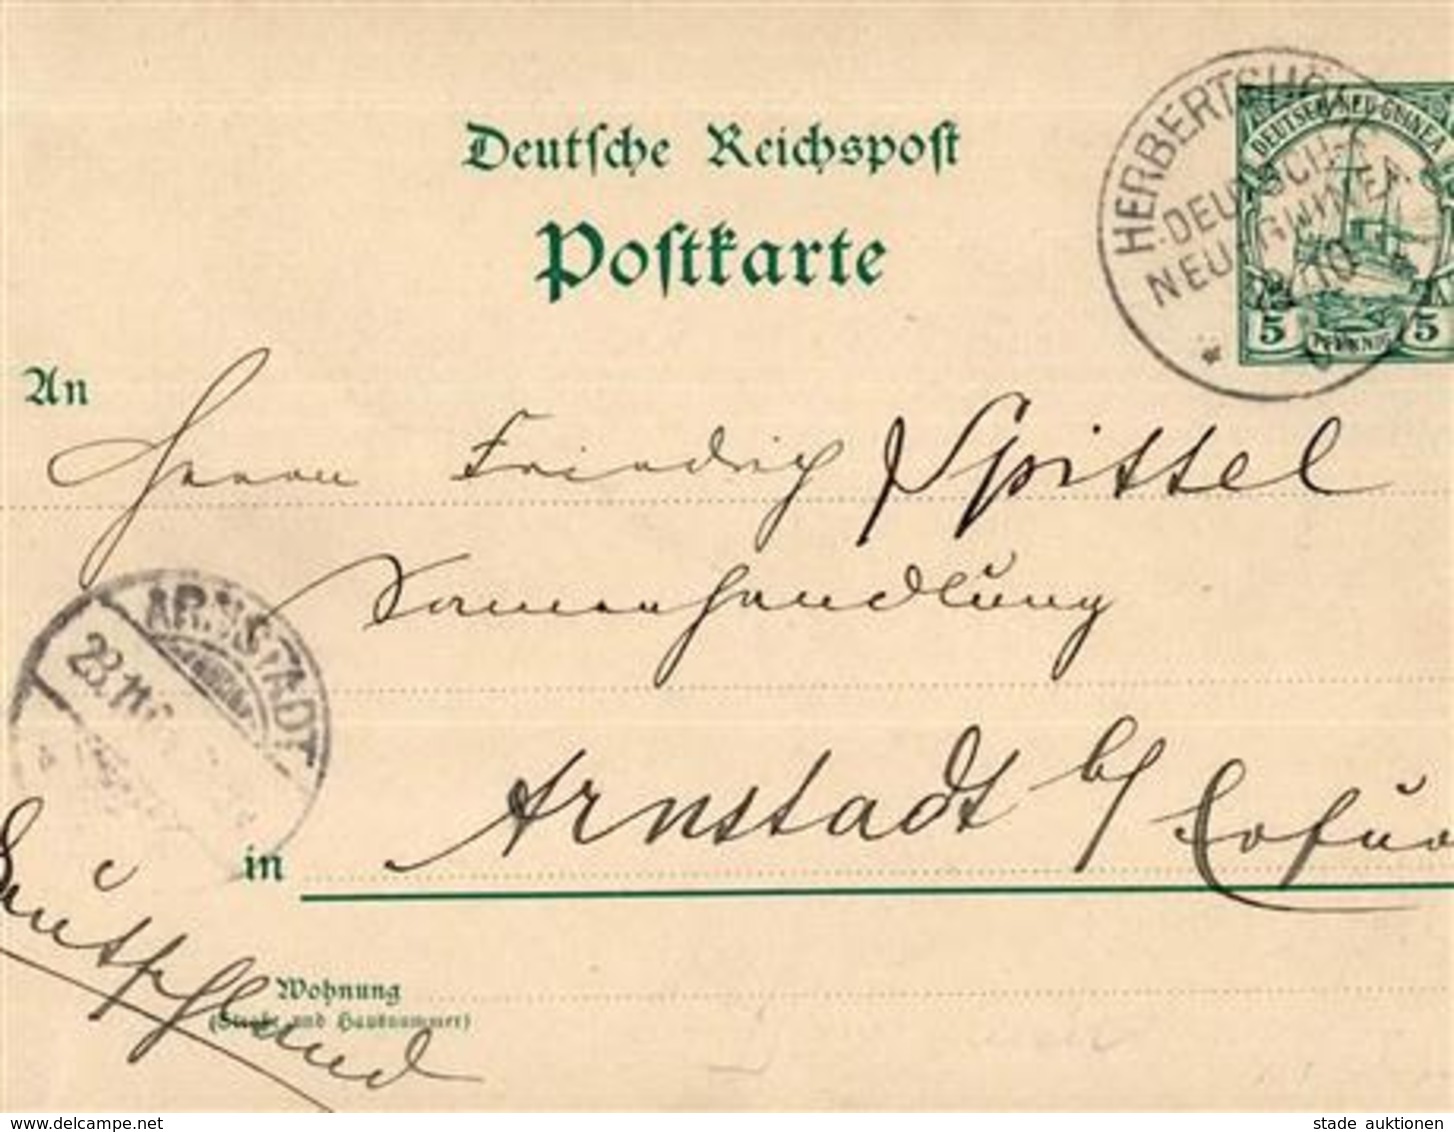 Deutsche Reichspost
Postkarte
HERBERTSHÖHE
DEUTSCH-
NEU-GUINEA
DEUTSCH-NEU-GUINEA
5 PFENNIG 5
An
Herrn Friedrich Spittel
Samenhandlung
ARNSTADT
23.11.
in Arnstadt b/ Erfur
Deutschland
Wohnung
(Straße und Hausnummer)
delcampe.net
stade auktionen